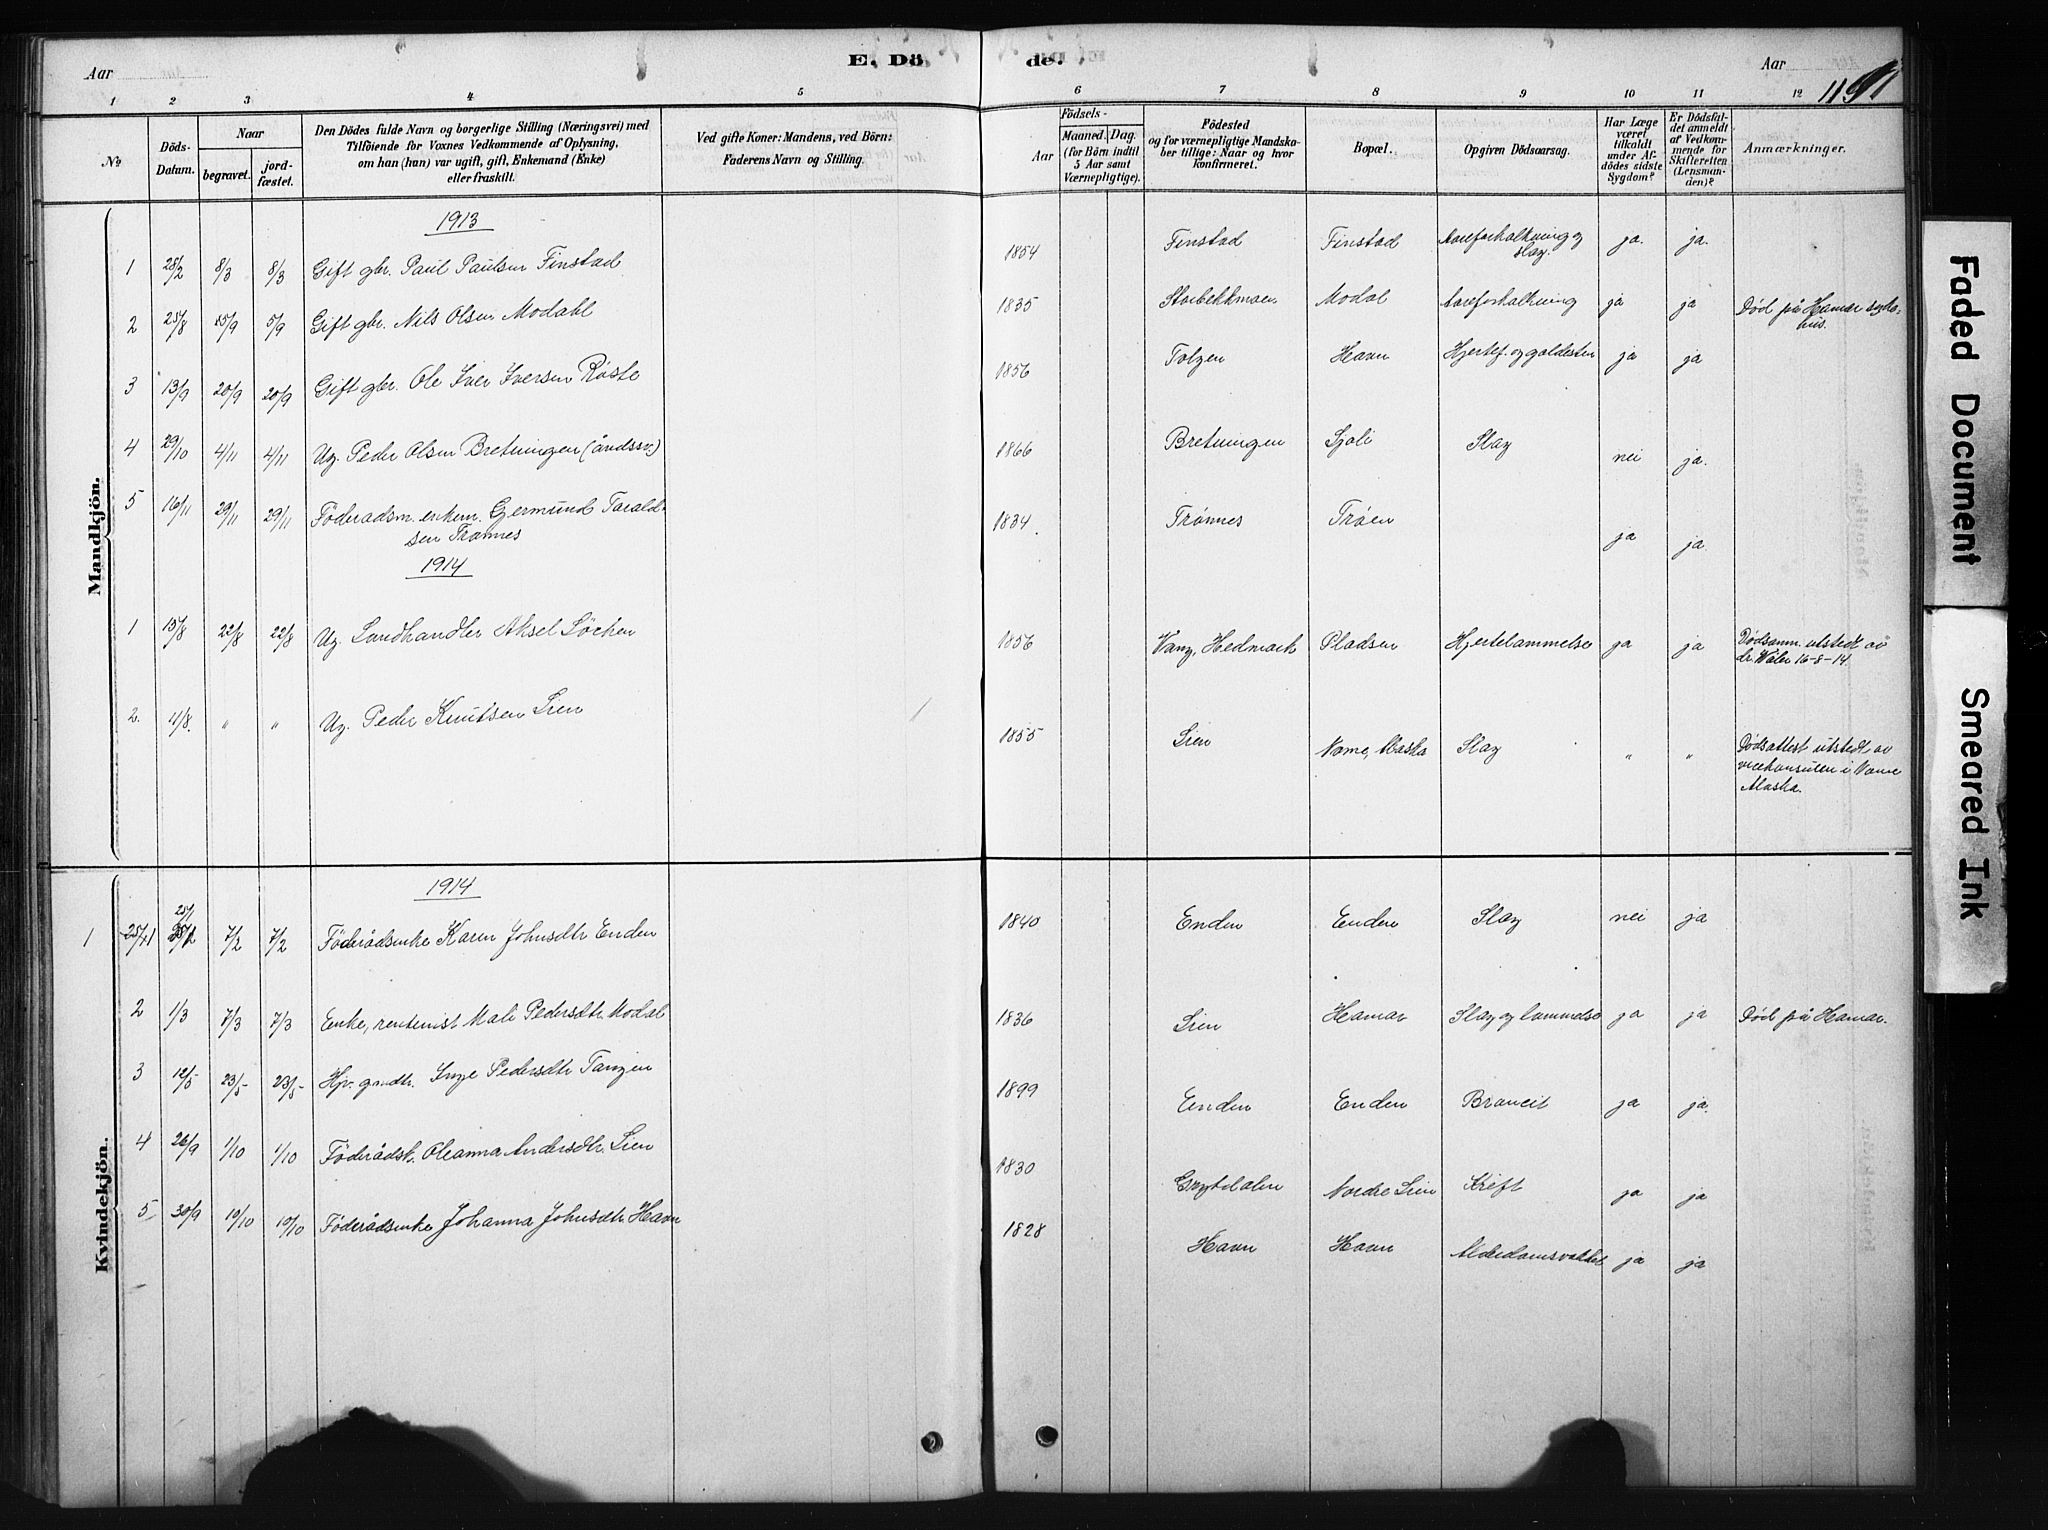 Aar
E. Dö
de.
Aar
1 2 3 4 5 6 7 8 9 10 11 12
No
Döds-Datum.
Naar
begravet.
jord-fæstet.
Den Dödes fulde Navn og borgerlige Stilling (Næringsvei) med
Tilföiende for Voxnes Vedkommende af Oplysning,
om han (hun) var ugift, gift, Enkemand (Enke)
eller fraskilt.
Ved gifte Koner: Mandens, ved Börn:
Faderens Navn og Stilling.
Födsels-
Aar
Maaned. Dag.
(for Börn indtil
5 Aar samt
Værnepligtige).
Födested
og for værnepligtige Mandska-
ber tillige: Naar og hvor
konfirmeret.
Bopæl.
Opgiven Dödsaarsag.
Har Læge
været
tilkaldt
under Af-
dödes sidste
Sygdom?
Er Dödsfal-
det anmeldt
af Vedkom-
mende for
Skifteretten
(Lensman-
den)?
Anmærkninger.
Mandkjön.
1913
1 28/2 8/3 8/3 Gift gbr. Paul Paulsen Finstad 1854 Finstad Finstad Aareforkalkning og slag. ja. ja.
2 25/8 5/9 5/9 Gift gbr. Nils Olsen Modahl 1835 Modal Aareforkalkning ja ja Död på Hamar syke-
hus.
3 13/9 20/9 20/9 Gift gbr. Ole Iver Iversen Röste 1856 Tolgen Havn Hjertef. og galdesten ja ja
4 29/10 4/11 4/11 Ug. Peder Olsen Bretningen (åndssv.) 1866 Bretningen Sjoli Slag nei ja.
5 16/11 29/11 29/11 Föderadsm. enkem. Gjermund Tarald-
sen Trönnes 1834 Trönnes Tröen ja ja.
1914
1 15/8 22/8 22/8 Ug. Landhandler Aksel Löchen 1856 Vang, Hedmark Pladsen Hjertelammelse ja ja Dödsanm. utstedt av
dr. Wåler 16-8-14.
2. 4/8. " " Ug. Peder Knutsen Lien 1855 Lien Nome, Alaska Slag " " Dödsattest utstedt av
vicekonsulen i Nome
Alaska.
Kvindekjön.
1914
1 25/1 7/2 7/2 Föderådsenke Karen Johnsdtr Enden 1840 Enden Enden Slag nei ja
2 1/3 7/3 7/3 Enke, rentenist Mali Pedersdtr. Modal 1836 Lien Hamar Slag og lammelse ja ja Död på Hamar.
3 12/5 23/5 23/5 Hjv. gmdtr. Inge Pedersdtr Tangen 1899 Enden Enden Broncit ja ja.
4 26/9 1/10 1/10 Föderådsk. Oleanna Andersdtr. Lien 1830 Grytdalen Nordre Lien Kreft ja ja
5 30/9 10/10 10/10 Föderådsenke Johanna Johnsdtr. Havn 1828 Havn Havn Alderdomsvakhet ja ja
Faded Document
Smeared Ink